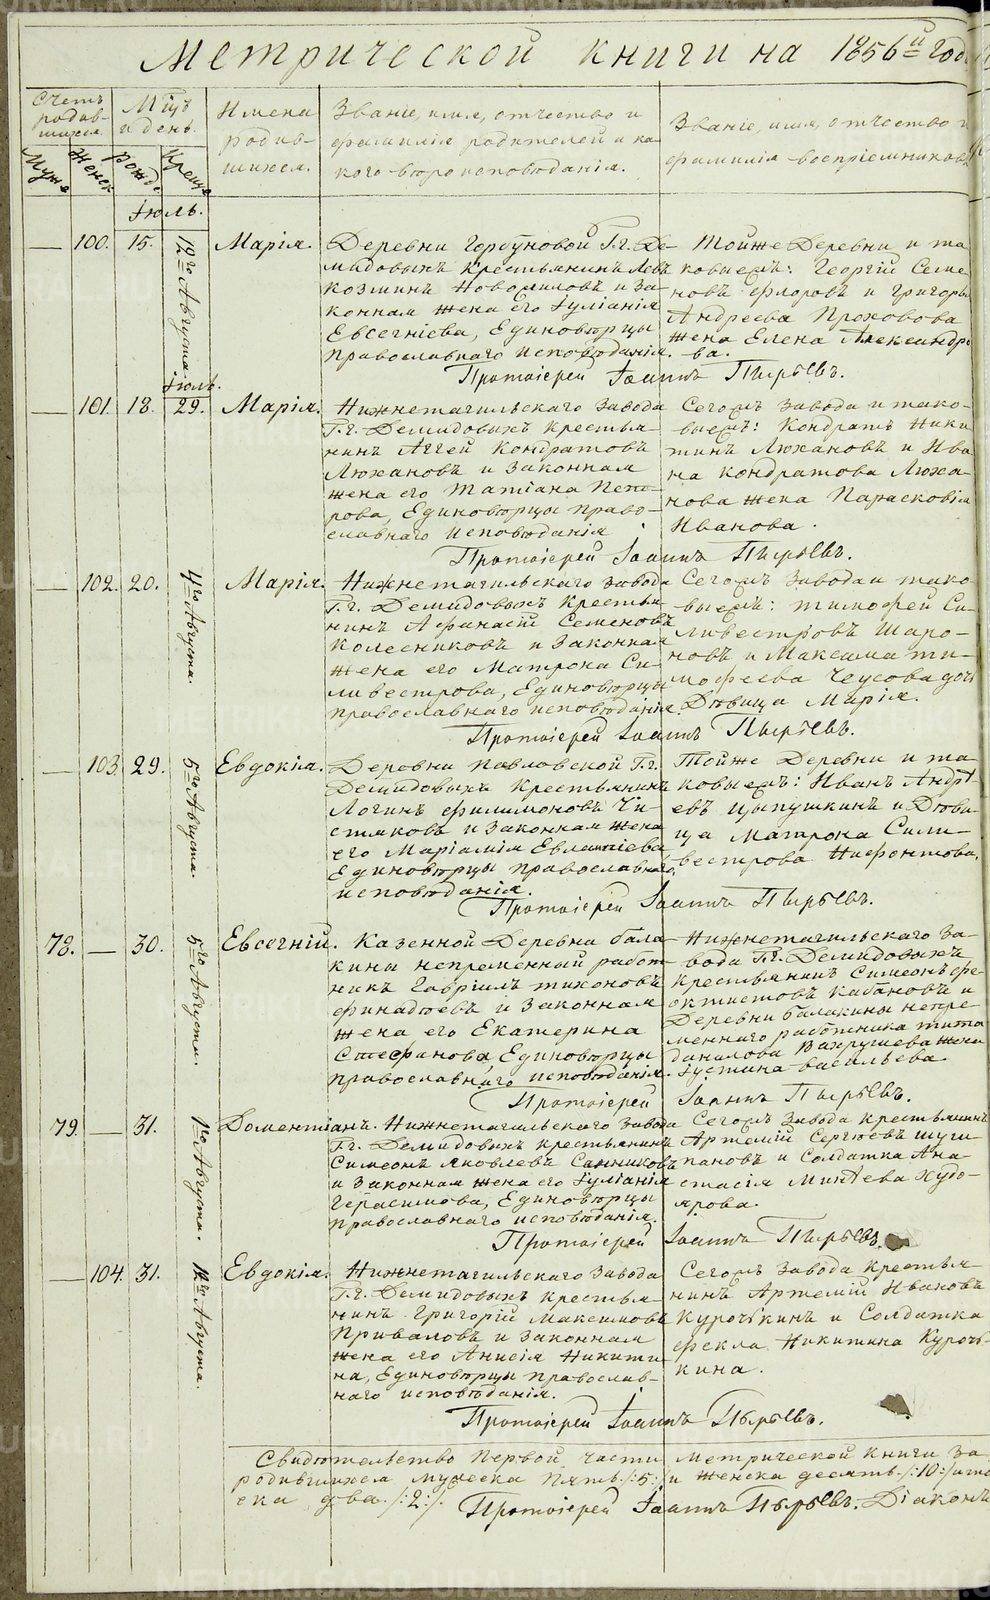 Метрической книги на 1856й год
Счетъ родив-шихся.
Мцъ и день.
Имена родив-шихся.
Званіе, имя, отчество и фамилія родителей и какого вѣроисповѣданія.
Званіе, имя, отчество и фамилія воспріемниковъ.
Муж. Женск. Рожд. Крещ.
Іюль.
— 100. 15. 12го Августа. Марія.
Деревни Горбуновой Г.г. Де-
мидовыхъ крестьянинъ Левъ
Козминъ Новомиловъ и за-
конная жена его Іуліанія
Евсегніева, Единовѣрцы
Православнаго исповѣданія.
Тойже Деревни и та
ковыежъ: Георгій Семе
новъ Флоровъ и Григорья
Андреева Прохорова
жена Елена Александро
ва.
Протоіерей Іоаннъ Пырьевъ.
Іюль.
— 101. 18. 29. Марія.
Нижнетагильскаго завода
Г.г. Демидовыхъ крестья-
нинъ Аггей Кондратовъ
Люхановъ и законная
жена его Татіана Пето-
рова, Единовѣрцы Право-
славнаго исповѣданія
Сегожъ завода и тако-
выежъ: Кондратъ Ники
тинъ Люхановъ и Ива
на Кондратова Люха-
нова жена Параскевія
Иванова.
Протоіерей Іоаннъ Пырьевъ.
— 102. 20. 4го Августа. Марія.
Нижнетагильскаго завода
Г.г. Демидовыхъ крестья-
нинъ Афанасій Семеновъ
Колесниковъ и законная
жена его Матрона Си-
ливестрова, Единовѣрцы
православнаго исповѣданія.
Сегожъ завода и тако
выежъ: Тимофей Си-
ливестровъ Шаро-
новъ и Максима Ти-
мофеева Чеусова дочь
Дѣвица Марія.
Протоіерей Іоаннъ Пырьевъ.
— 103. 29. 5го Августа. Евдокіа.
Деревни Павловской Г.г.
Демидовыхъ крестьянинъ
Логинъ Филимоновъ Чи-
стяковъ и законная жена
его Маріамія Евлампіева
Единовѣрцы православнаго
исповѣданія.
Тойже Деревни и та
ковыежъ: Иванъ Андрѣ
евъ Цыпушкинъ и Дѣви-
ца Матрона Сили-
вестрова Нифонтова.
Протоіерей Іоаннъ Пырьевъ.
78. — 30. 5го Августа. Евсегній.
Казенной Деревни Бала
кины непременный работ
никъ Гавріилъ Тихоновъ
Финадѣевъ и законная
жена его Екатерина
Стефанова, Единовѣрцы
православнаго исповѣданія.
Нижнетагильскаго за-
вода Г.г. Демидовыхъ
крестьянинъ Симеонъ Фе-
октистовъ Кабановъ и
Деревни Балакины непре-
меннаго работника Тита
Данилова Вахрушева жена
Іустина Васильева.
Протоіерей Іоаннъ Пырьевъ.
79. — 31. 1го Августа. Доментіанъ.
Нижнетагильскаго завода
Г.г. Демидовыхъ крестьянинъ
Симеонъ Яковлевъ Санниковъ
и законная жена его Іуліанія
Герасимова, Единовѣрцы
православнаго исповѣданія.
Сегожъ завода крестьянинъ
Артемій Сергѣевъ Шуш
пановъ и солдатка Ана
стасія Минѣева Худо-
ярова.
Протоіерей Іоаннъ Пырьевъ.
— 104. 31. 12го Августа. Евдокія.
Нижнетагильскаго завода
Г.г. Демидовыхъ крестья-
нинъ Григорій Максимовъ
Приваловъ и законная
жена его Анисія Никити-
на, Единовѣрцы православ-
наго исповѣданія.
Сегожъ завода крестья-
нинъ Артемій Ивановъ
Курочькинъ и солдатка
Фекла Никитина Курочь-
кина.
Протоіерей Іоаннъ Пырьевъ.
Свидѣтельство Первой части Метрической книги за
родившихся мужеска пять /:5:/ и женска десять /:10:/
ска два /:2:/. Протоіерей Іоаннъ Пырьевъ. Діаконъ